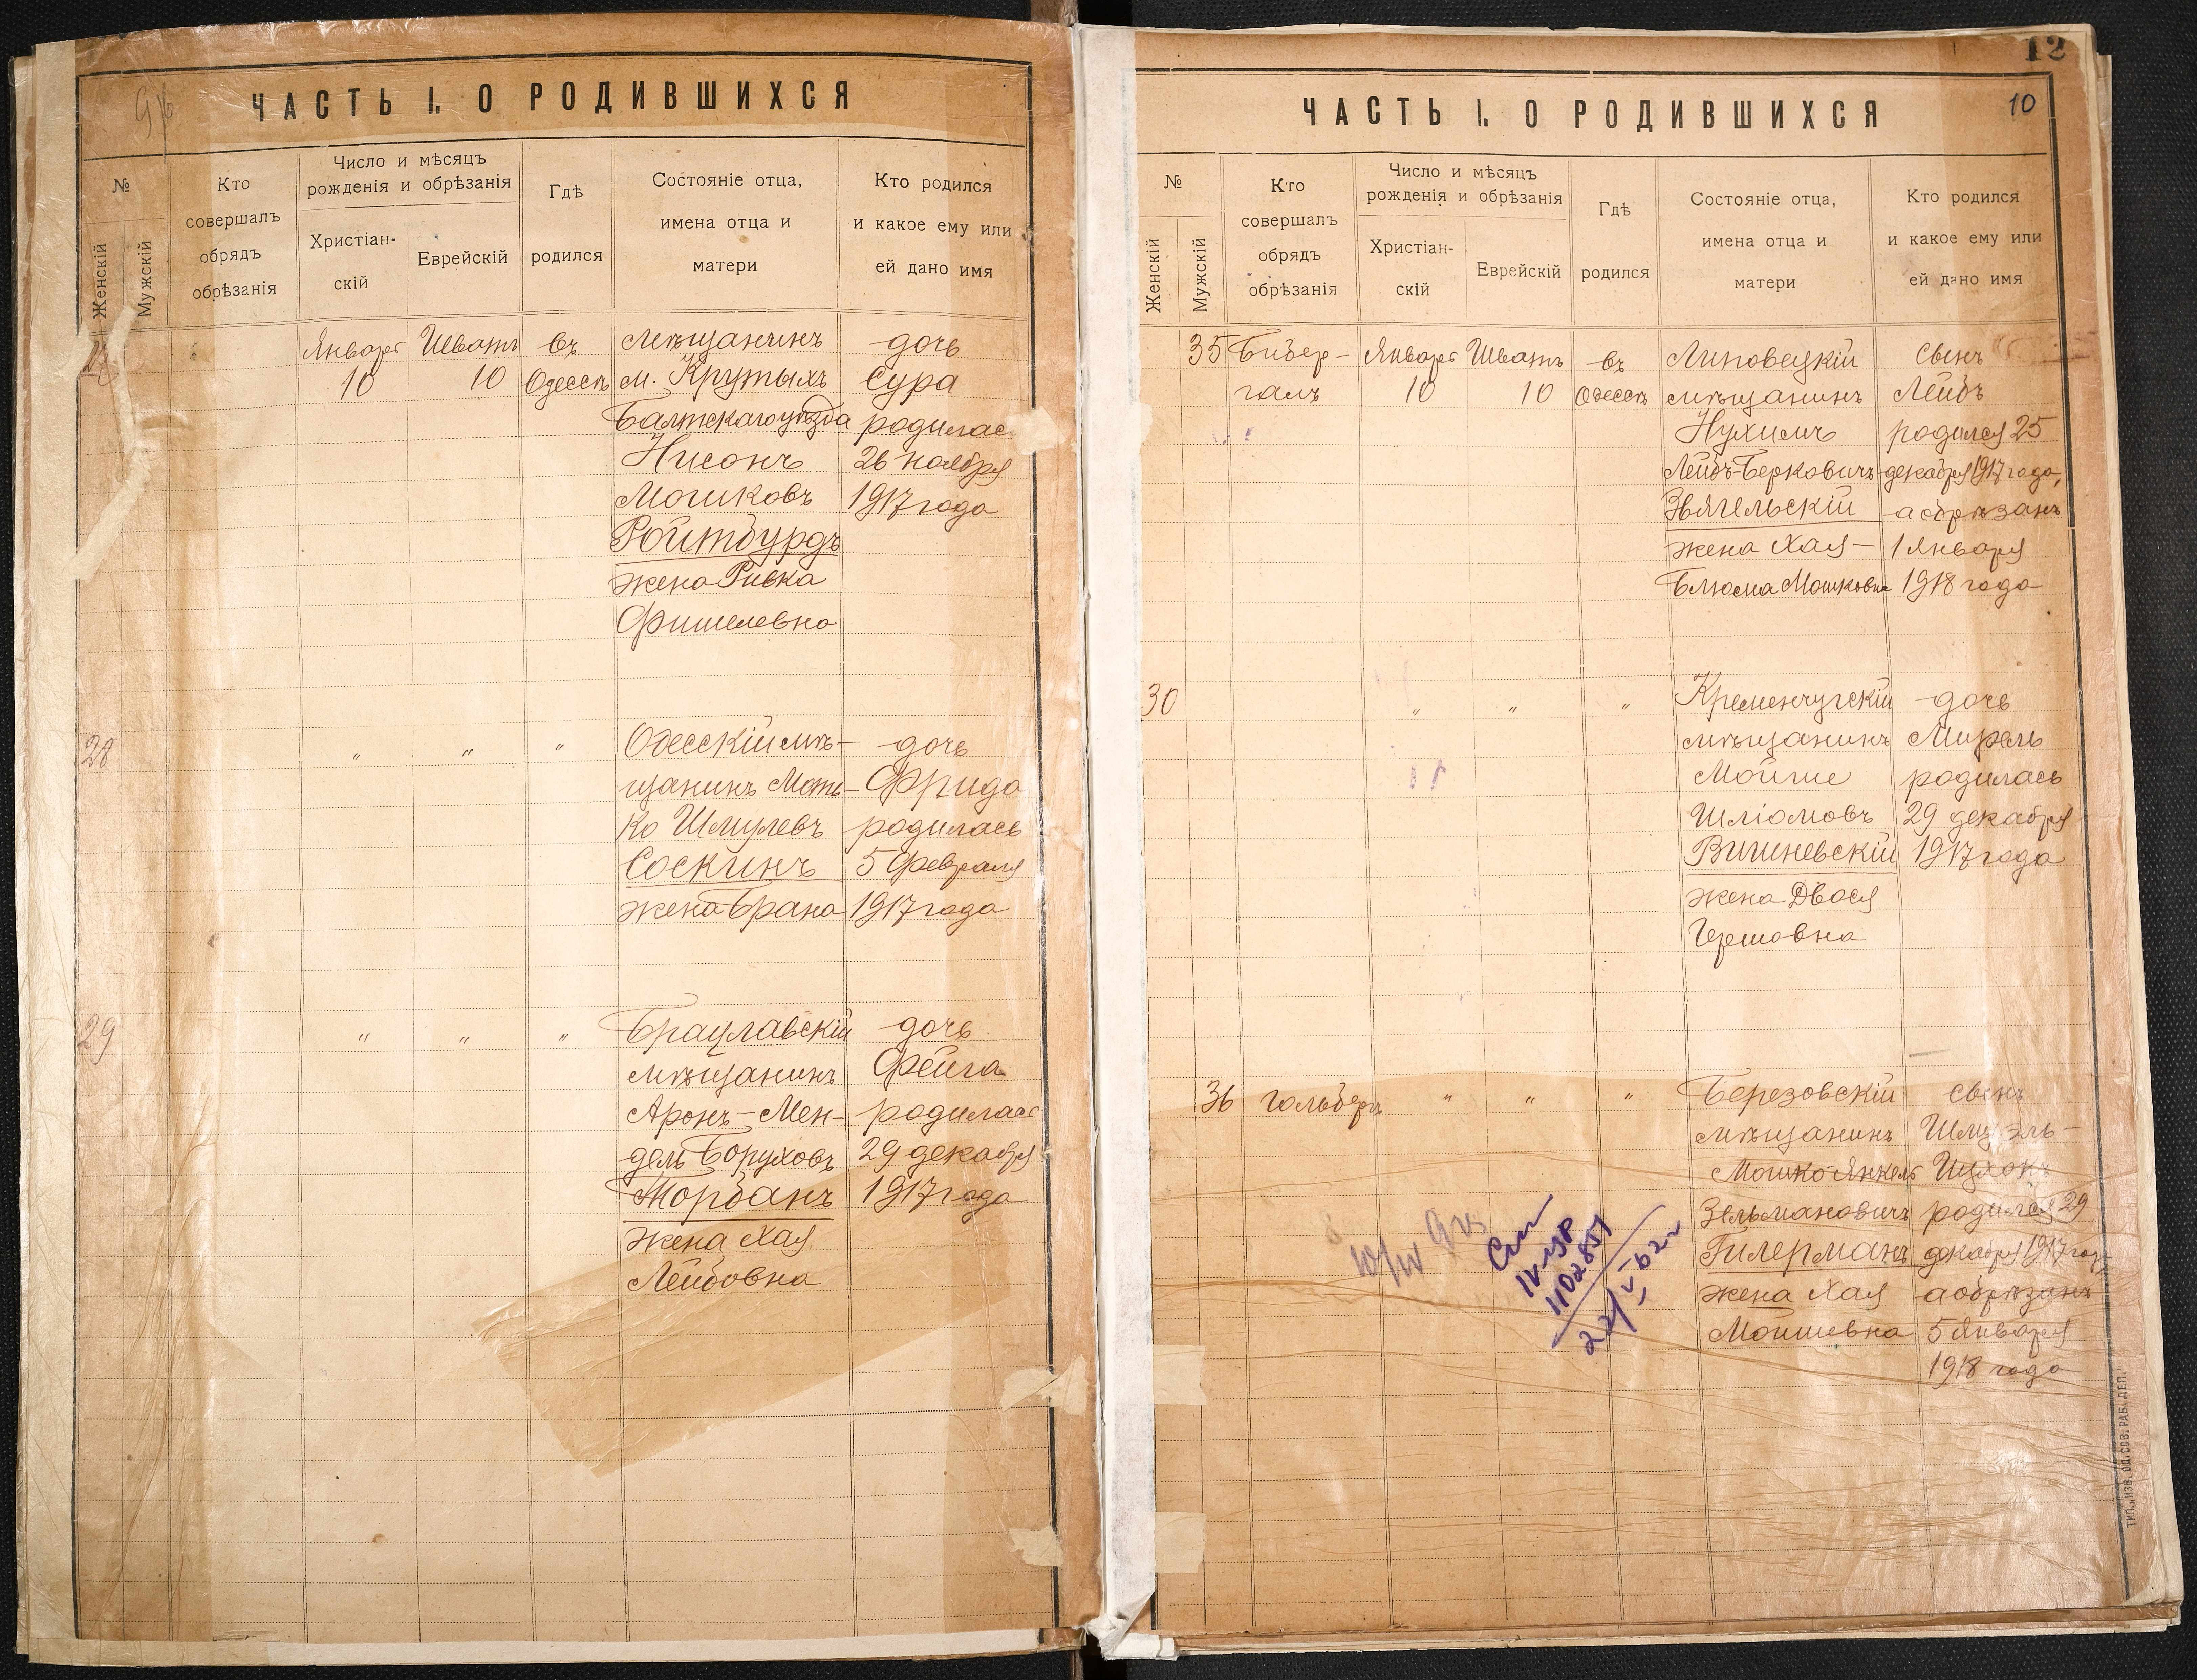 ЧАСТЬ I. О РОДИВШИХСЯ
№
Женскій
Мужскій
Кто
совершалъ
обрядъ
обрѣзанія
Число и мѣсяцъ
рожденія и обрѣзанія
Христіан-
скій
Еврейскій
Гдѣ
родился
Состояніе отца,
имена отца и
матери
Кто родился
и какое ему или
ей дано имя
Января
10
Шватъ
10
въ
Одессѣ
мѣщанинъ
м. Крутыхъ
Балтскаго уѣзда
Нисонъ
Мошковъ
Ройтбурдъ
жена Ривка
Фишелевна
дочь
Сура
родилась
26 ноября
1917 года
28
" " "
Одесскій мѣ-
щанинъ Моть-
ко Шмулевъ
Соскинъ
жена Брана
дочь
Фрида
родилась
5 февраля
1917 года
29
" " "
Брацлавскій
мѣщанинъ
Аронъ-Мен-
дель Боруховъ
Жорбанъ
жена Хая
Лейбовна
дочь
Фейга
родилась
29 декабря
1917 года
12
10
ЧАСТЬ I. О РОДИВШИХСЯ
№
Женскій
Мужскій
Кто
совершалъ
обрядъ
обрѣзанія
Число и мѣсяцъ
рожденія и обрѣзанія
Христіан-
скій
Еврейскій
Гдѣ
родился
Состояніе отца,
имена отца и
матери
Кто родился
и какое ему или
ей дано имя
35
Бибер-
галъ
Января
10
Шватъ
10
въ
Одессѣ
Липовецкій
мѣщанинъ
Нухимъ
Лейбъ-Берковичъ
Звягельскій
жена Хая-
Блюма Мошковна
сынъ
Лейбъ
родился 25
декабря 1917 года,
а обрѣзанъ
1 Января
1918 года
30
" " "
Кременчугскій
мѣщанинъ
Мойше
Шліомовъ
Вишневскій
жена Двося
Гершовна
дочь
Мирель
родилась
29 декабря
1917 года
36
Гольберъ
" " "
Березовскій
мѣщанинъ
Мошко-Янкель
Зельмановичъ
Гилерманъ
жена Хая
Мошшевна
сынъ
Шмуэль-
Ицхокъ
родился 29
декабря 1917 год
а обрѣзанъ
5 Января
1918 года
ТИП. „ИЗВ. ОД. СОВ. РАБ. ДЕП."